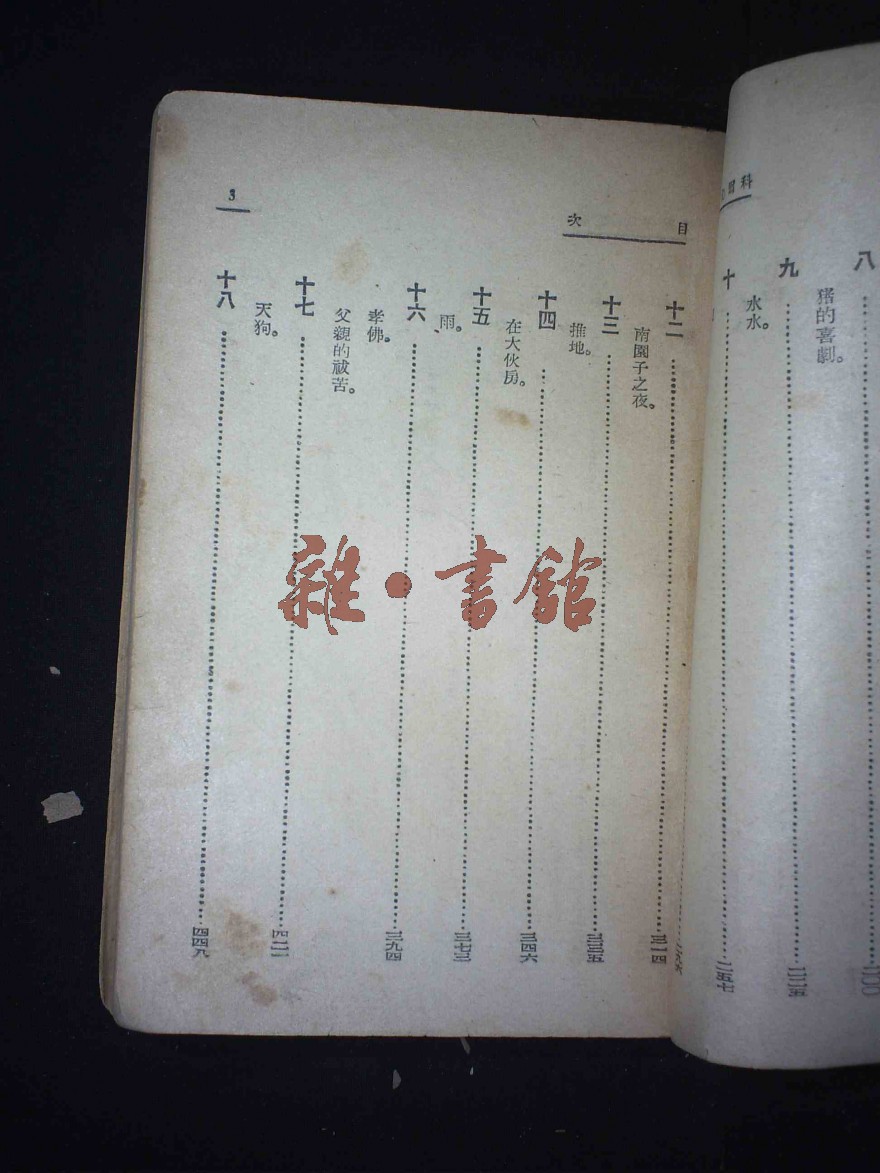 科爾
八……二〇〇
猪的喜劇。
九……二二五
水水。
十……二五七
目　次
十二……三一四
南園子之夜。
十三……三三五
推地。
十四……三四六
在大伙房。
十五……三七三
雨。
十六……三九四
孝佛。
父親的祓苦。
十七……四二一
天狗。
十八……四四九
3
雜·書館